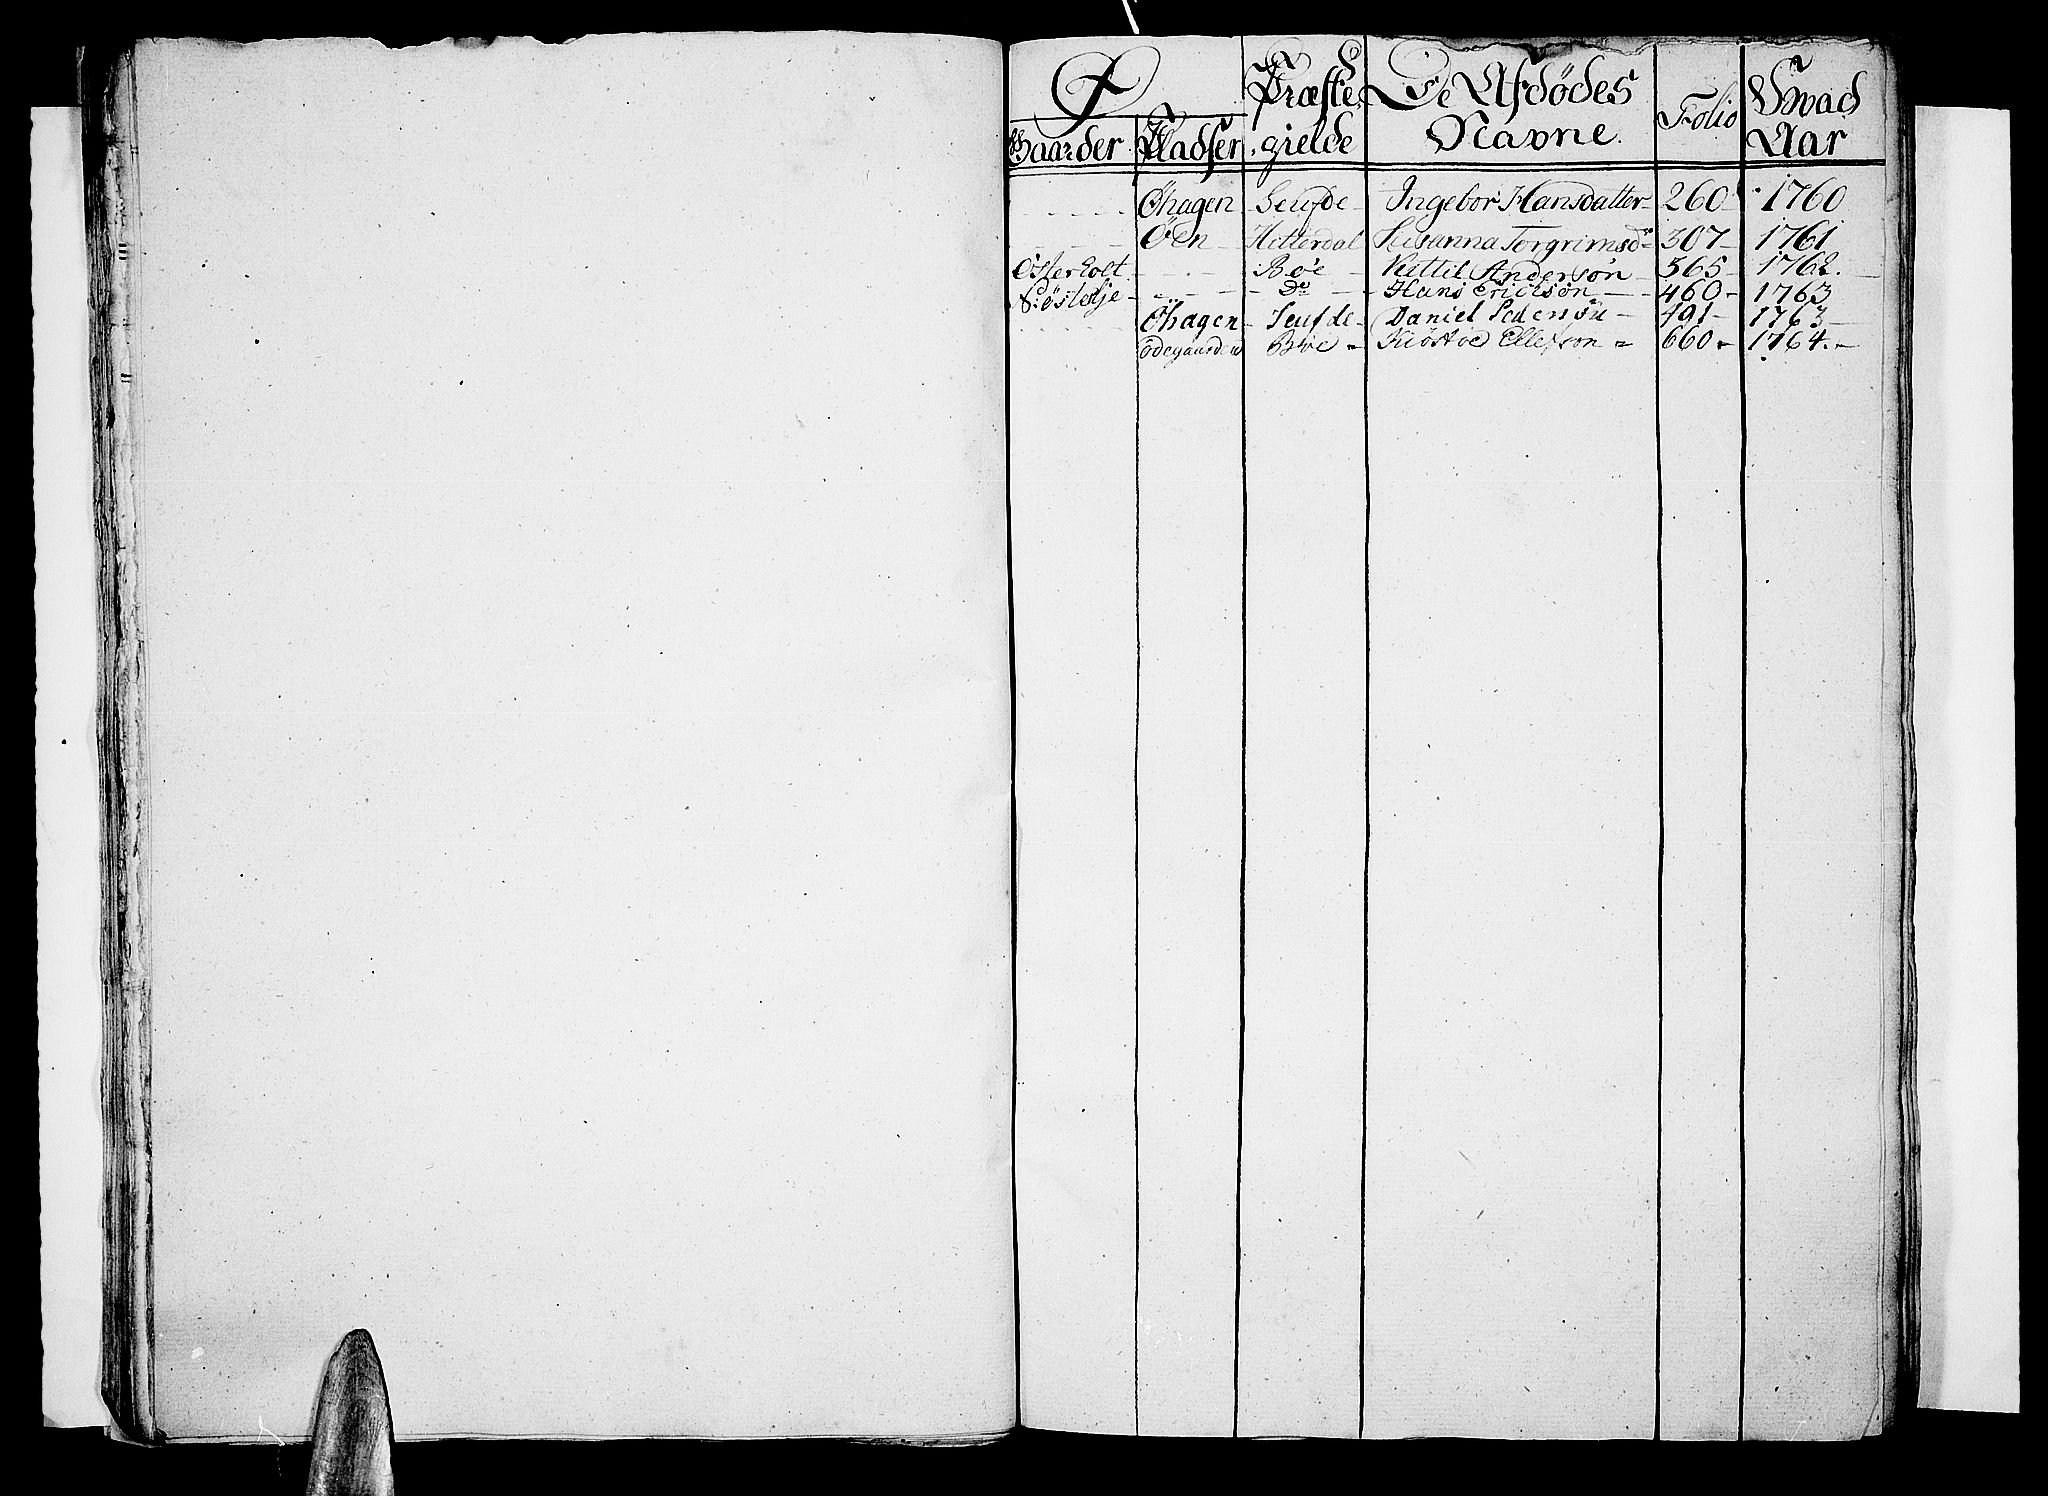 Ø
Gaarder Pladser Præste gielde De Afdødes Navne. Folio Hvad Aar
Øhagen Seufde Ingebor Hansdatter 260 1760
Øen Hitterdal Susanna Torgrimsdr 307 1761
Østerholt Bøe Kittil Andersøn 365 1762.
N: Østerlje Do Hans Ericksøn 460 1763
Øhagen Seufde Daniel Pedersøn 491 1763
Ødegaarden Bøe Kiøstod Ellefson 660 1764.